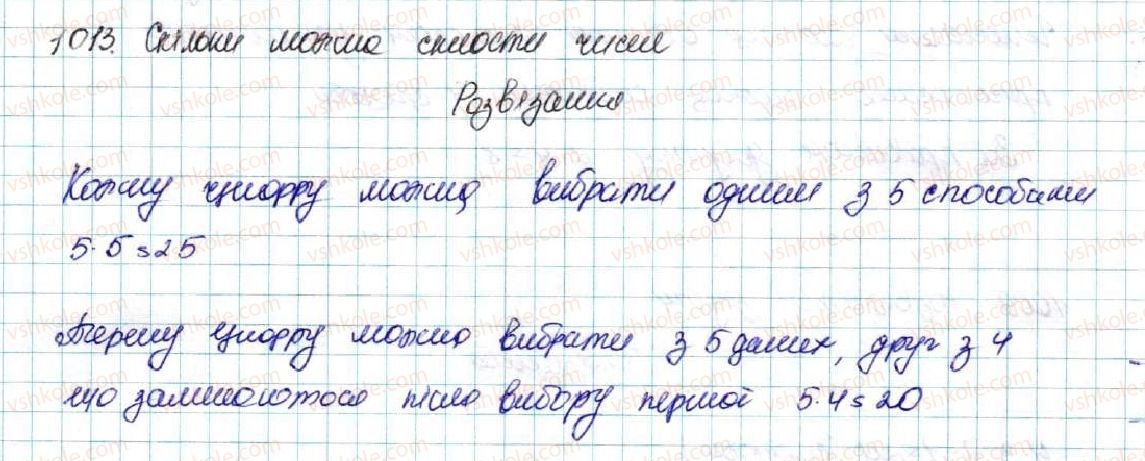 1013. Скільки можна скласти чисел
Розв'язання
Кожну цифру можна вибрати одним з 5 способами
5·5=25
Першу цифру можна вибрати з 5 даних, друг з 4
що залишаються після вибору першої 5·4=20